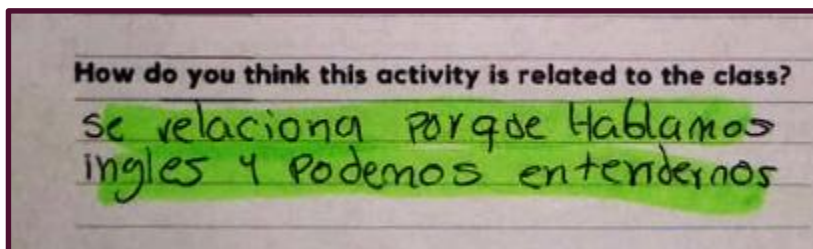 How do you think this activity is related to the class?
se relaciona porque Hablamos
ingles y Podemos entendernos